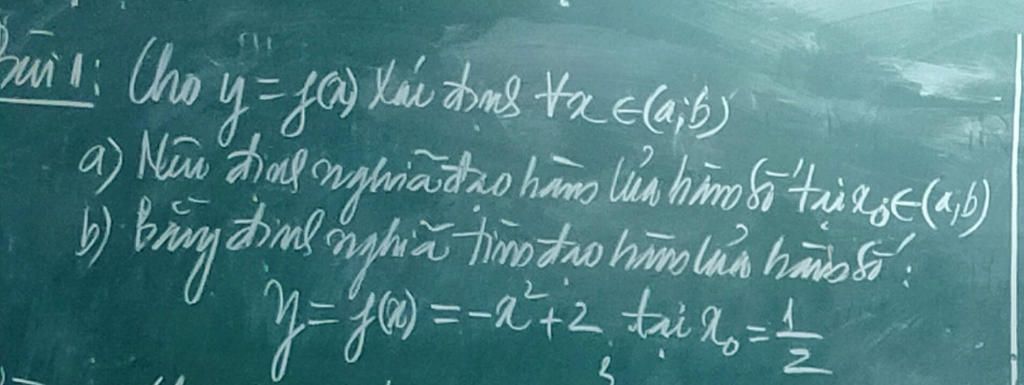 Bài 1: Cho y = f(x) xác định ∀x ∈ (a;b)
a) Nêu định nghĩa đạo hàm của hàm số tại x₀ ∈ (a;b)
b) Bằng định nghĩa tìm đạo hàm của hàm số:
y = f(x) = -x² + 2 tại x₀ = 1/2